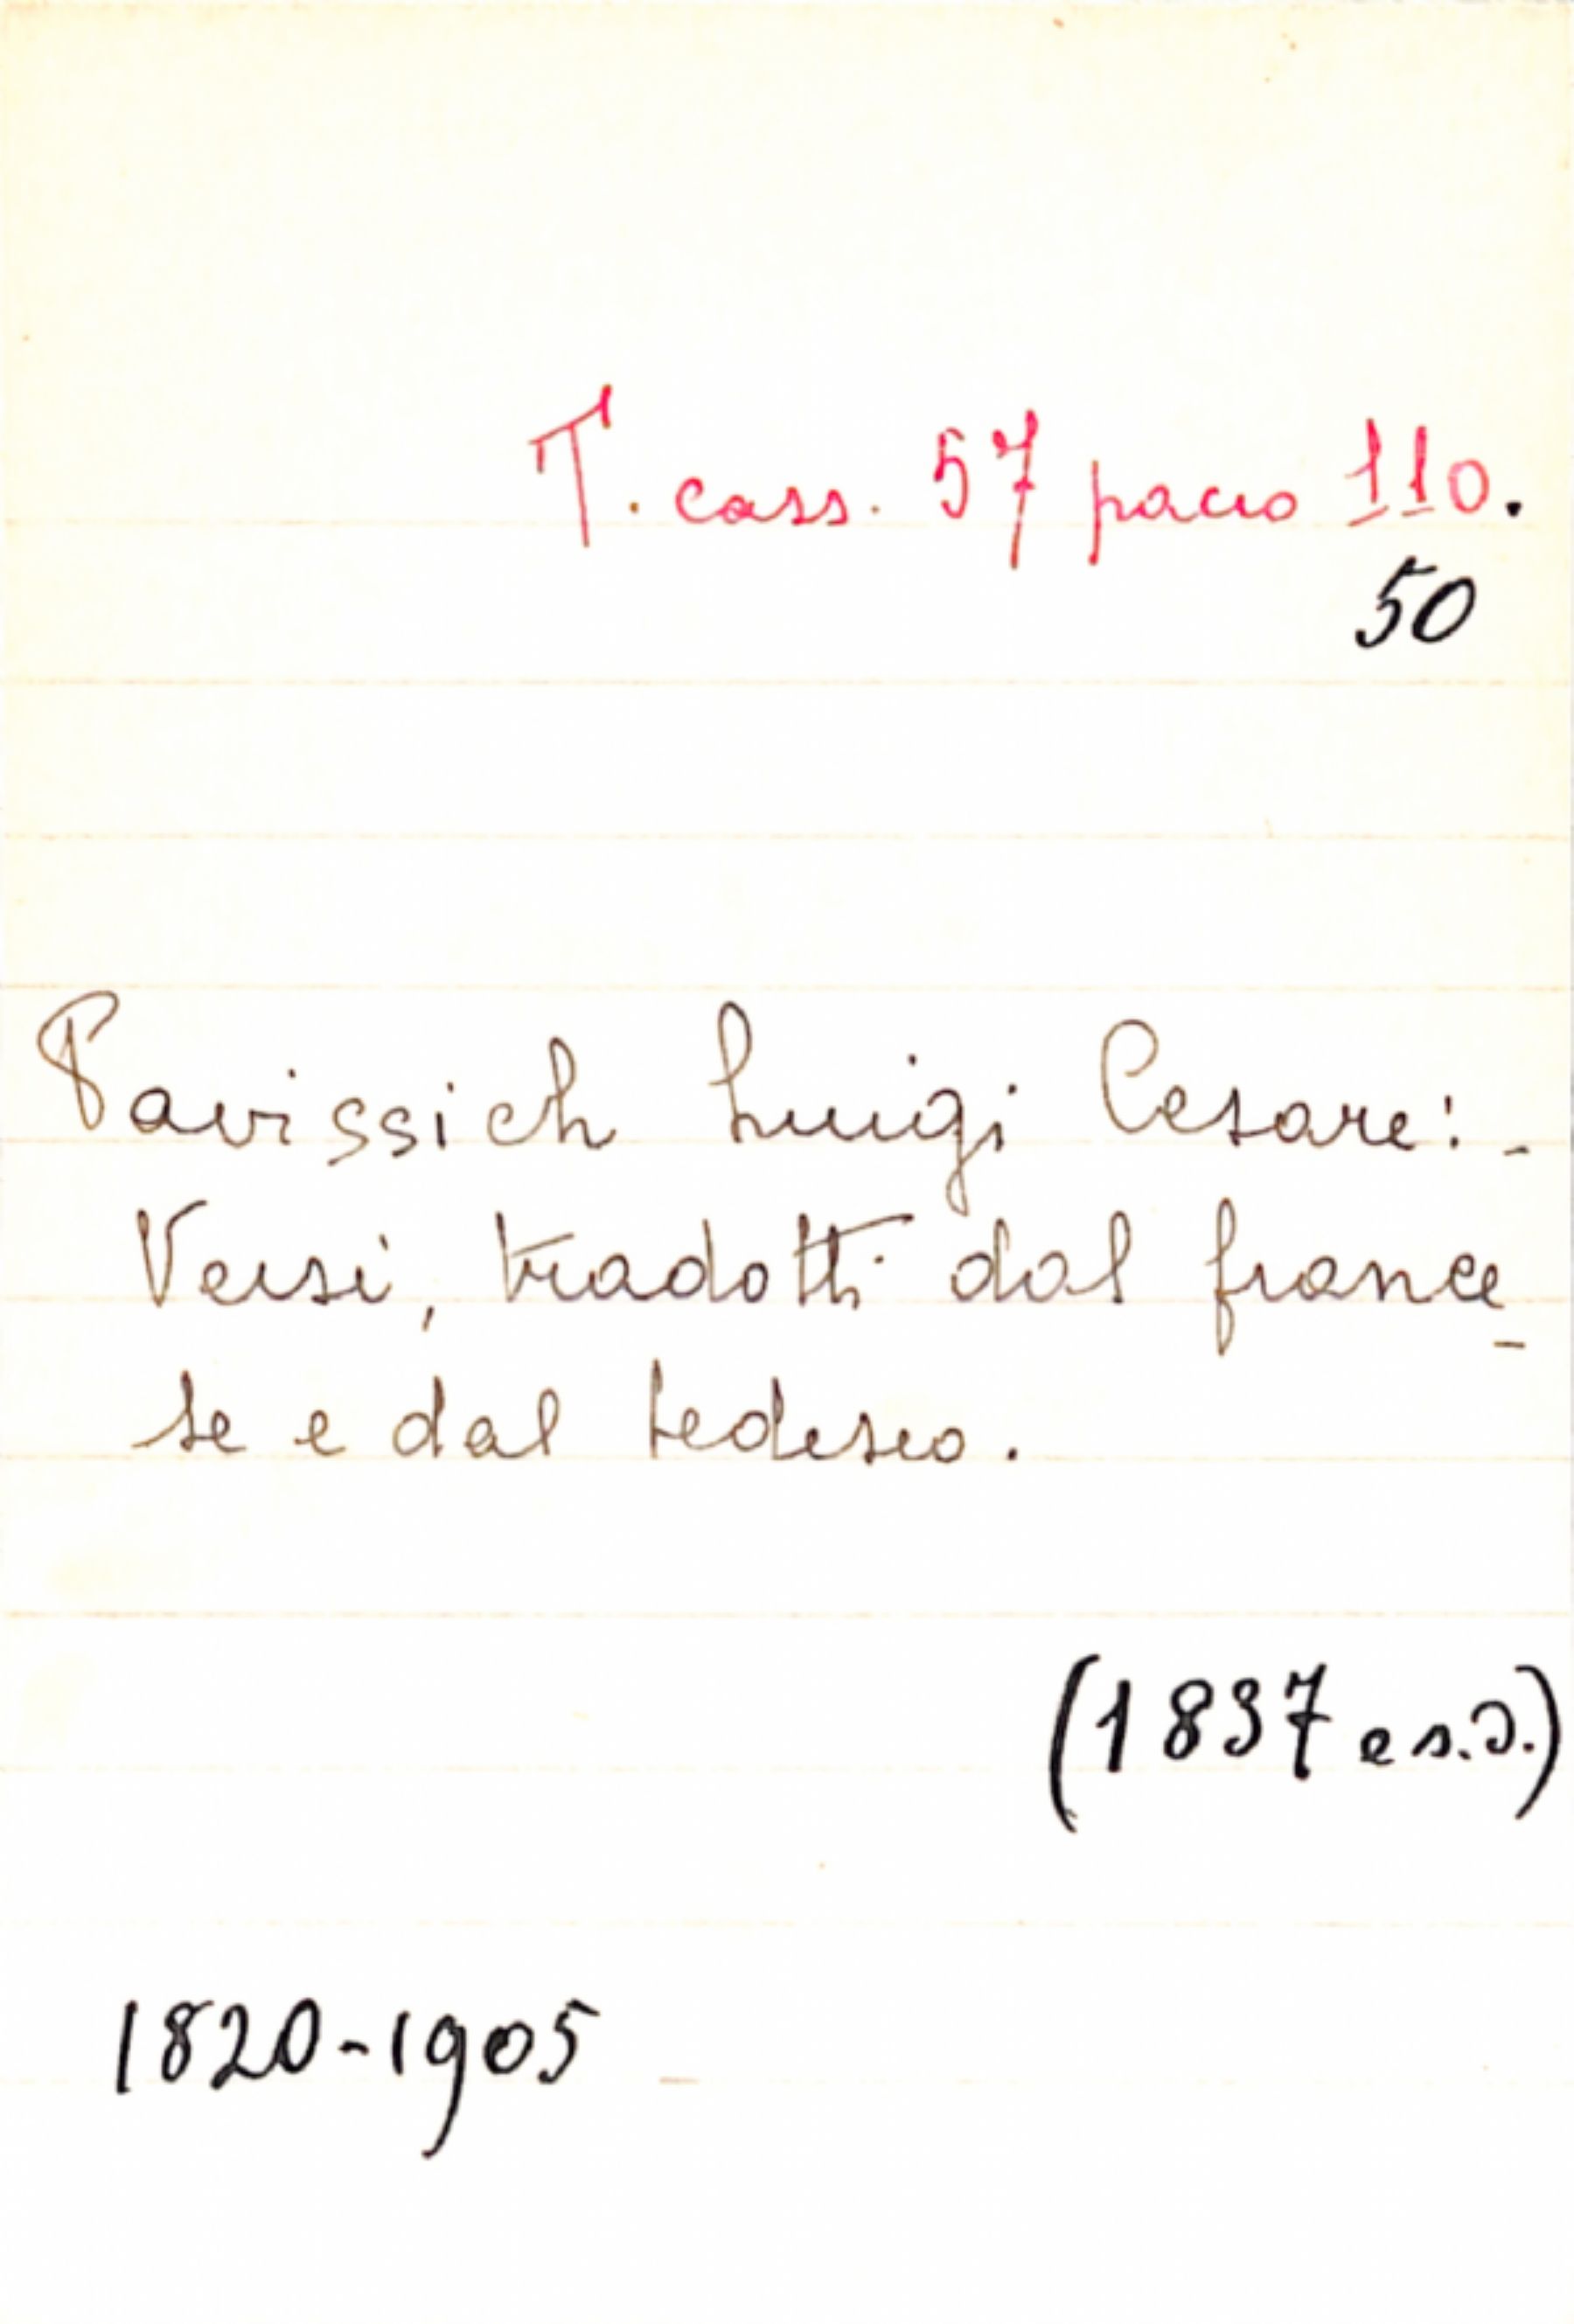 T. cass. 57 pacco 110.
50
Pavissich Luigi Cesare: -
Versi, tradotti dal france-
se e dal tedesco.
(1837 e s.d.)
1820-1905